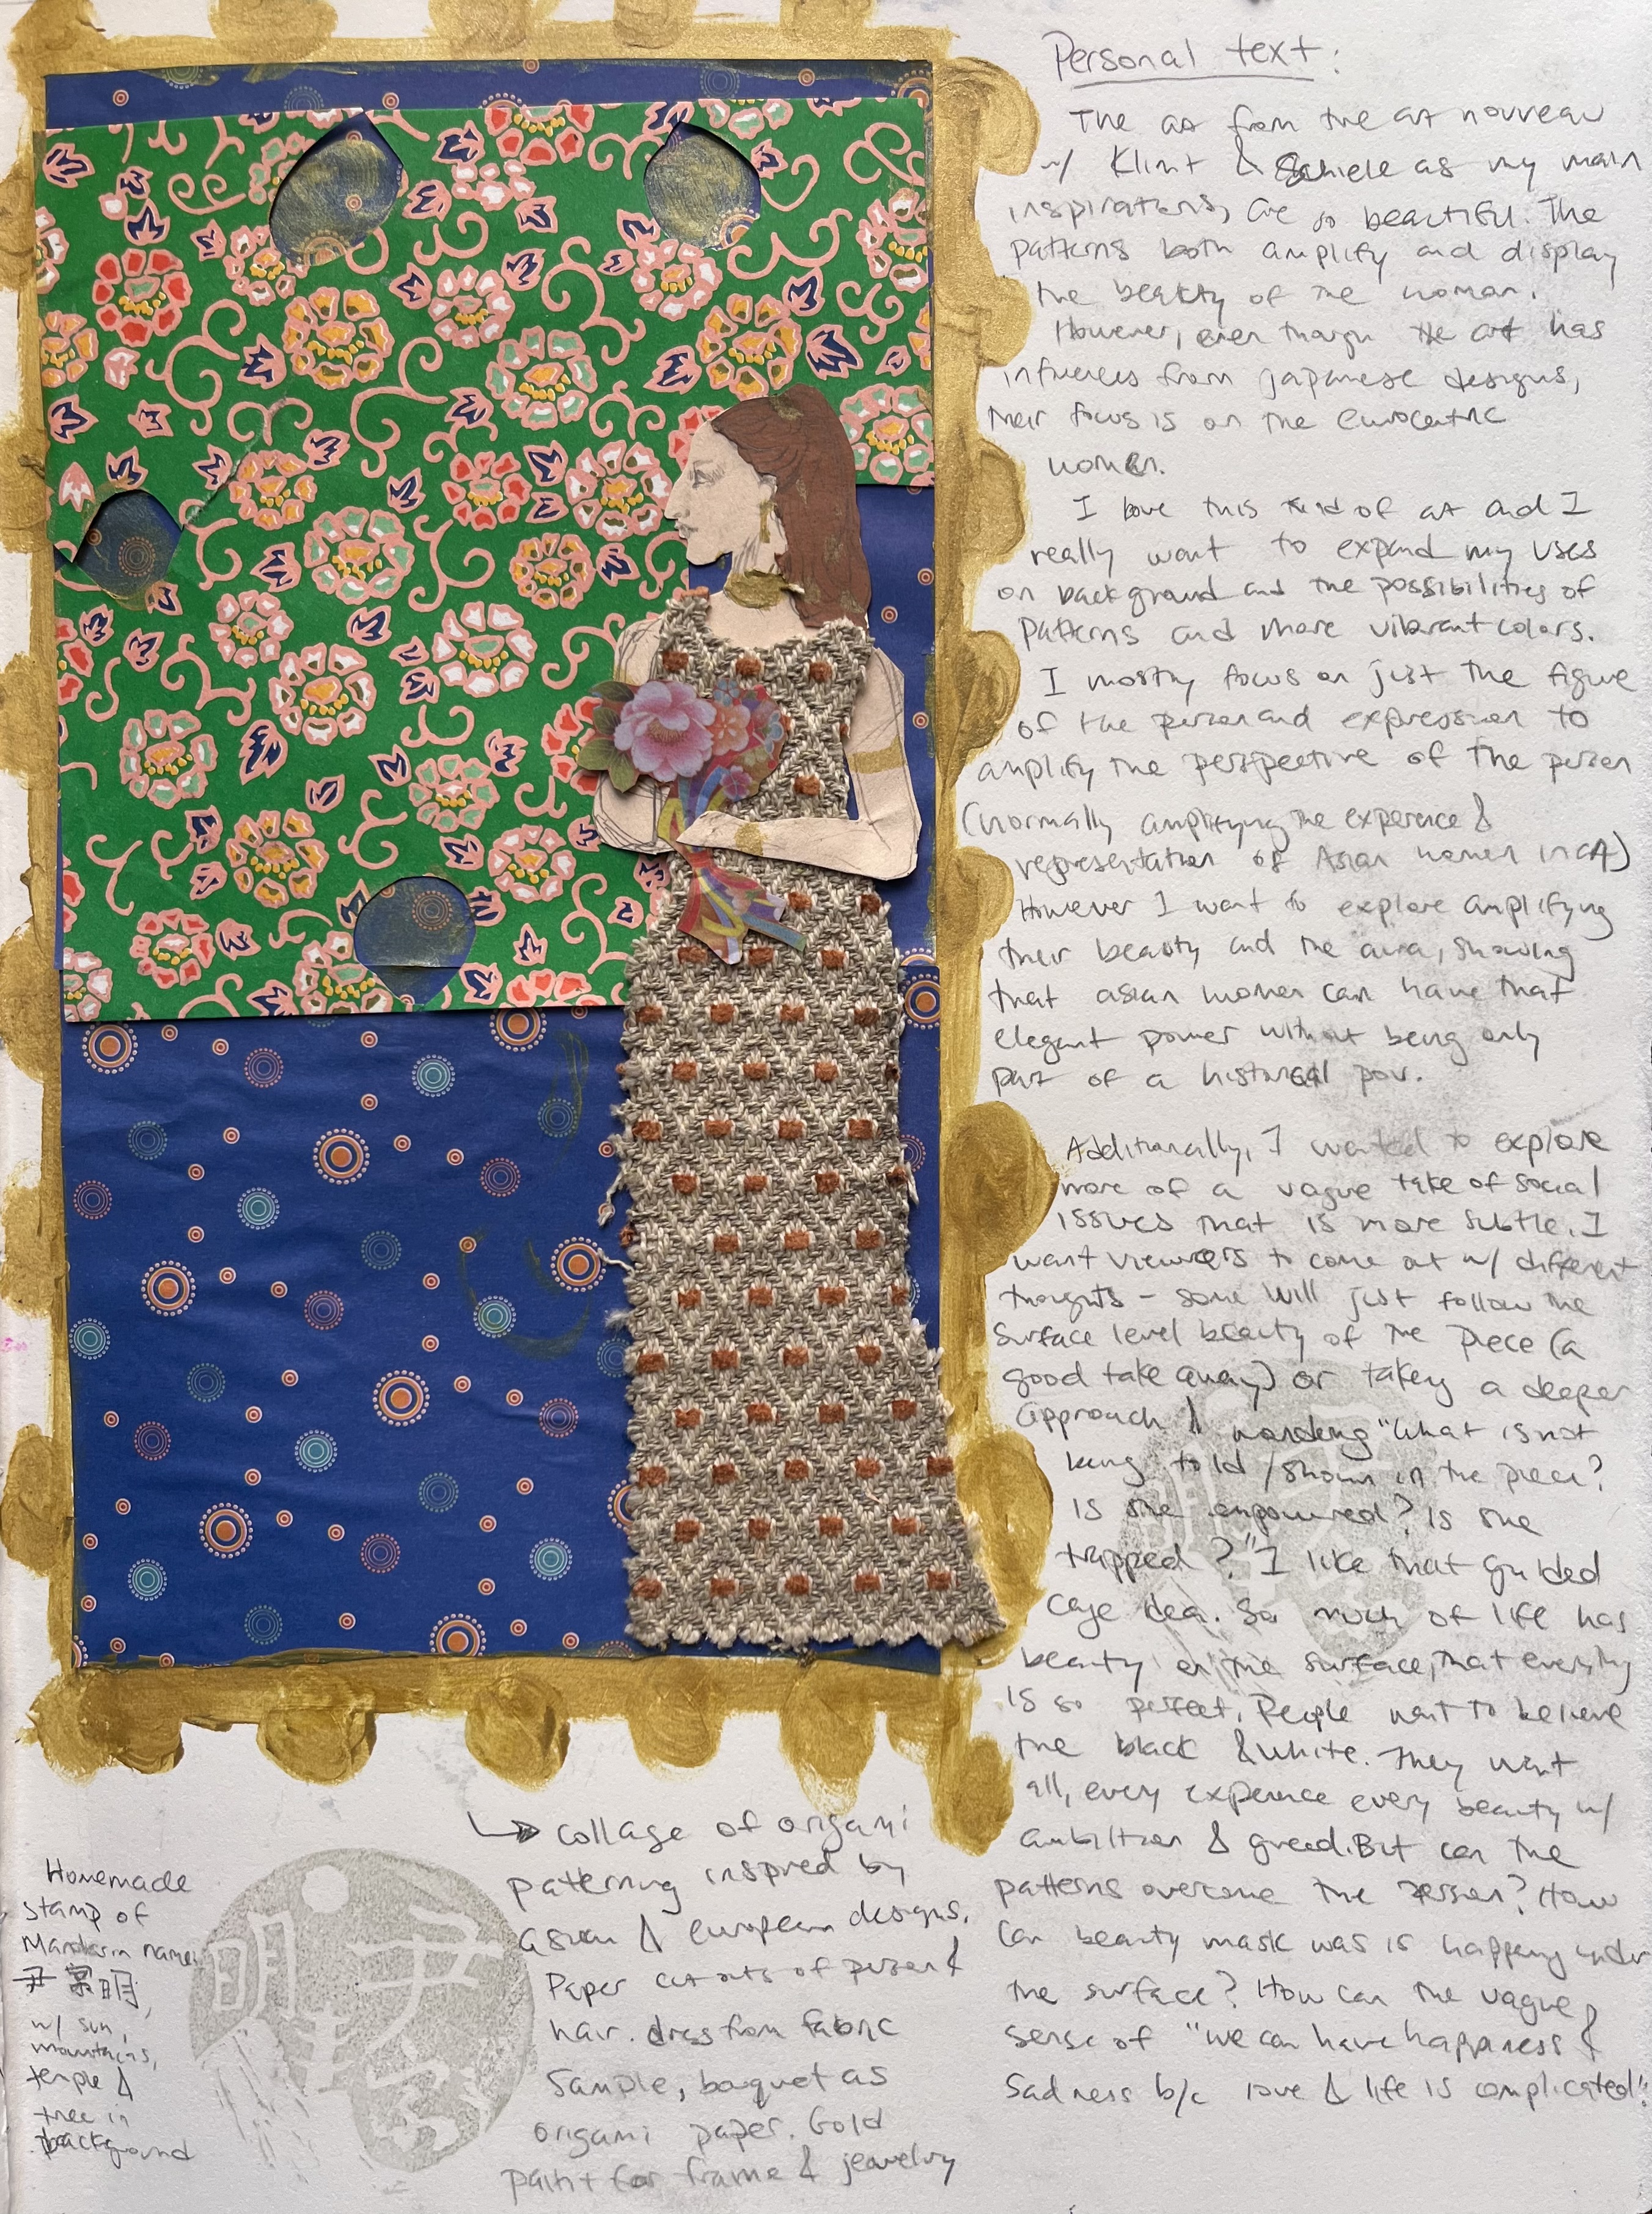 Personal text:
The art from the art nouveau
w/ Klint & Schiele as my main
inspirations, are so beautiful. The
patterns both amplify and display
the beauty of the woman.
However, even though the art has
influences from japanese designs,
their focus is on the eurocentric
women.
I love this kind of art and I
really want to expand my uses
on background and the possibilities of
patterns and more vibrant colors.
I mostly focus on just the figure
of the person and expression to
amplify the perspective of the person
(normally amplifying the experence &
representation of Asian women in CA)
However I want to explore amplifying
their beauty and the aura, showing
that asian women can have that
elegant power without being only
part of a historical pov.
Additionally, I wanted to explore
more of a vague take of social
issues that is more subtle. I
want viewers to come out w/ different
thoughts - some will just follow the
surface level beauty of the piece (a
good take away) or taking a deeper
approach & wondering "What is not
being told / shown in the piece?
Is she empowered? Is she
trapped?" I like that guilded
cage idea. So much of life has
beauty on the surface, that everything
is so perfect. People want to believe
the black & white. They want
all, every experence every beauty w/
ambiltion & greed. But can the
patterns overcome the person? How
can beauty mask was is happening under
the surface? How can the vague
sense of "we can have happiness &
sadness b/c love & life is complicated".
↳ collage of origami
patterning inspired by
asian & european designs.
Paper cut outs of person &
hair. dress from fabric
sample, boquet as
origami paper. Gold
paint for frame & jewelry
Homemade
stamp of
Mandarin name
尹 景明,
w/ sun,
mountains,
temple &
tree in
background
尹
景
明